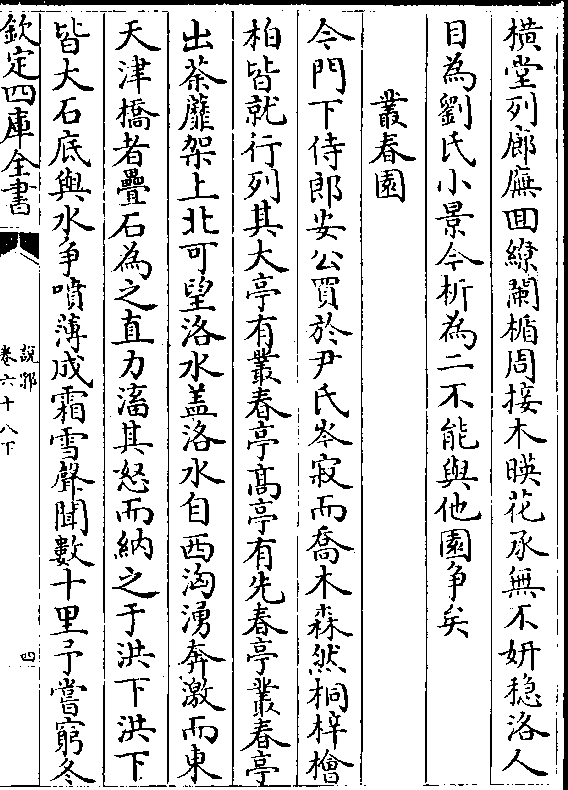 橫堂列廊廡囬繚闌楯周接木暎花承無不妍穏洛人
目為劉氏小景今析為二不能與他園争矣
叢春園
今門下侍郎安公買於尹氏岑寂而喬木森然桐梓檜
柏皆就行列其大亭有叢春亭髙亭有先春亭叢春亭
出荼蘼架上北可望洛水盖洛水自西洶湧奔激而東
天津橋者疊石為之直力滀其怒而納之于洪下洪下
皆大石底與水争噴薄成霜雪聲聞數十里予嘗窮冬
欽定四庫全書
說郛
卷六十八下
四